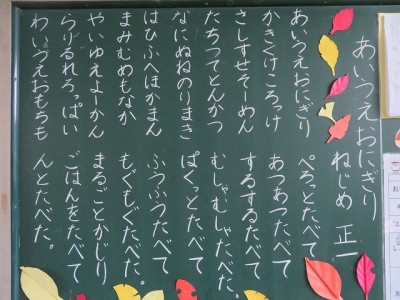 あいうえおにぎり
ねじめ 正一
あいうえおにぎり
ぺろっとたべて
かきくけころっけ
あつあつたべて
さしすせそーめん
するするたべて
たちつてとんかつ
むしゃむしゃたべた。
なにぬねのりまき
ぱくっとたべて
はひふへほかまん
ふうふうたべて
まみむめもなか
もぐもぐたべた。
やいゆえよーかん
まるごとかじり
らりるれろっぱい
ごはんをたべて
わいうえおもちも
んとたべた。